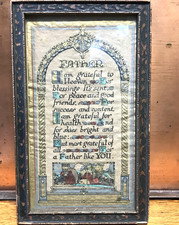 FATHER
I am grateful to
Heaven For
blessings Its sent
For peace and good
friends, For
success and content
I am grateful for
health and
for skies bright and
blue
But most grateful of
all For
a Father like YOU.